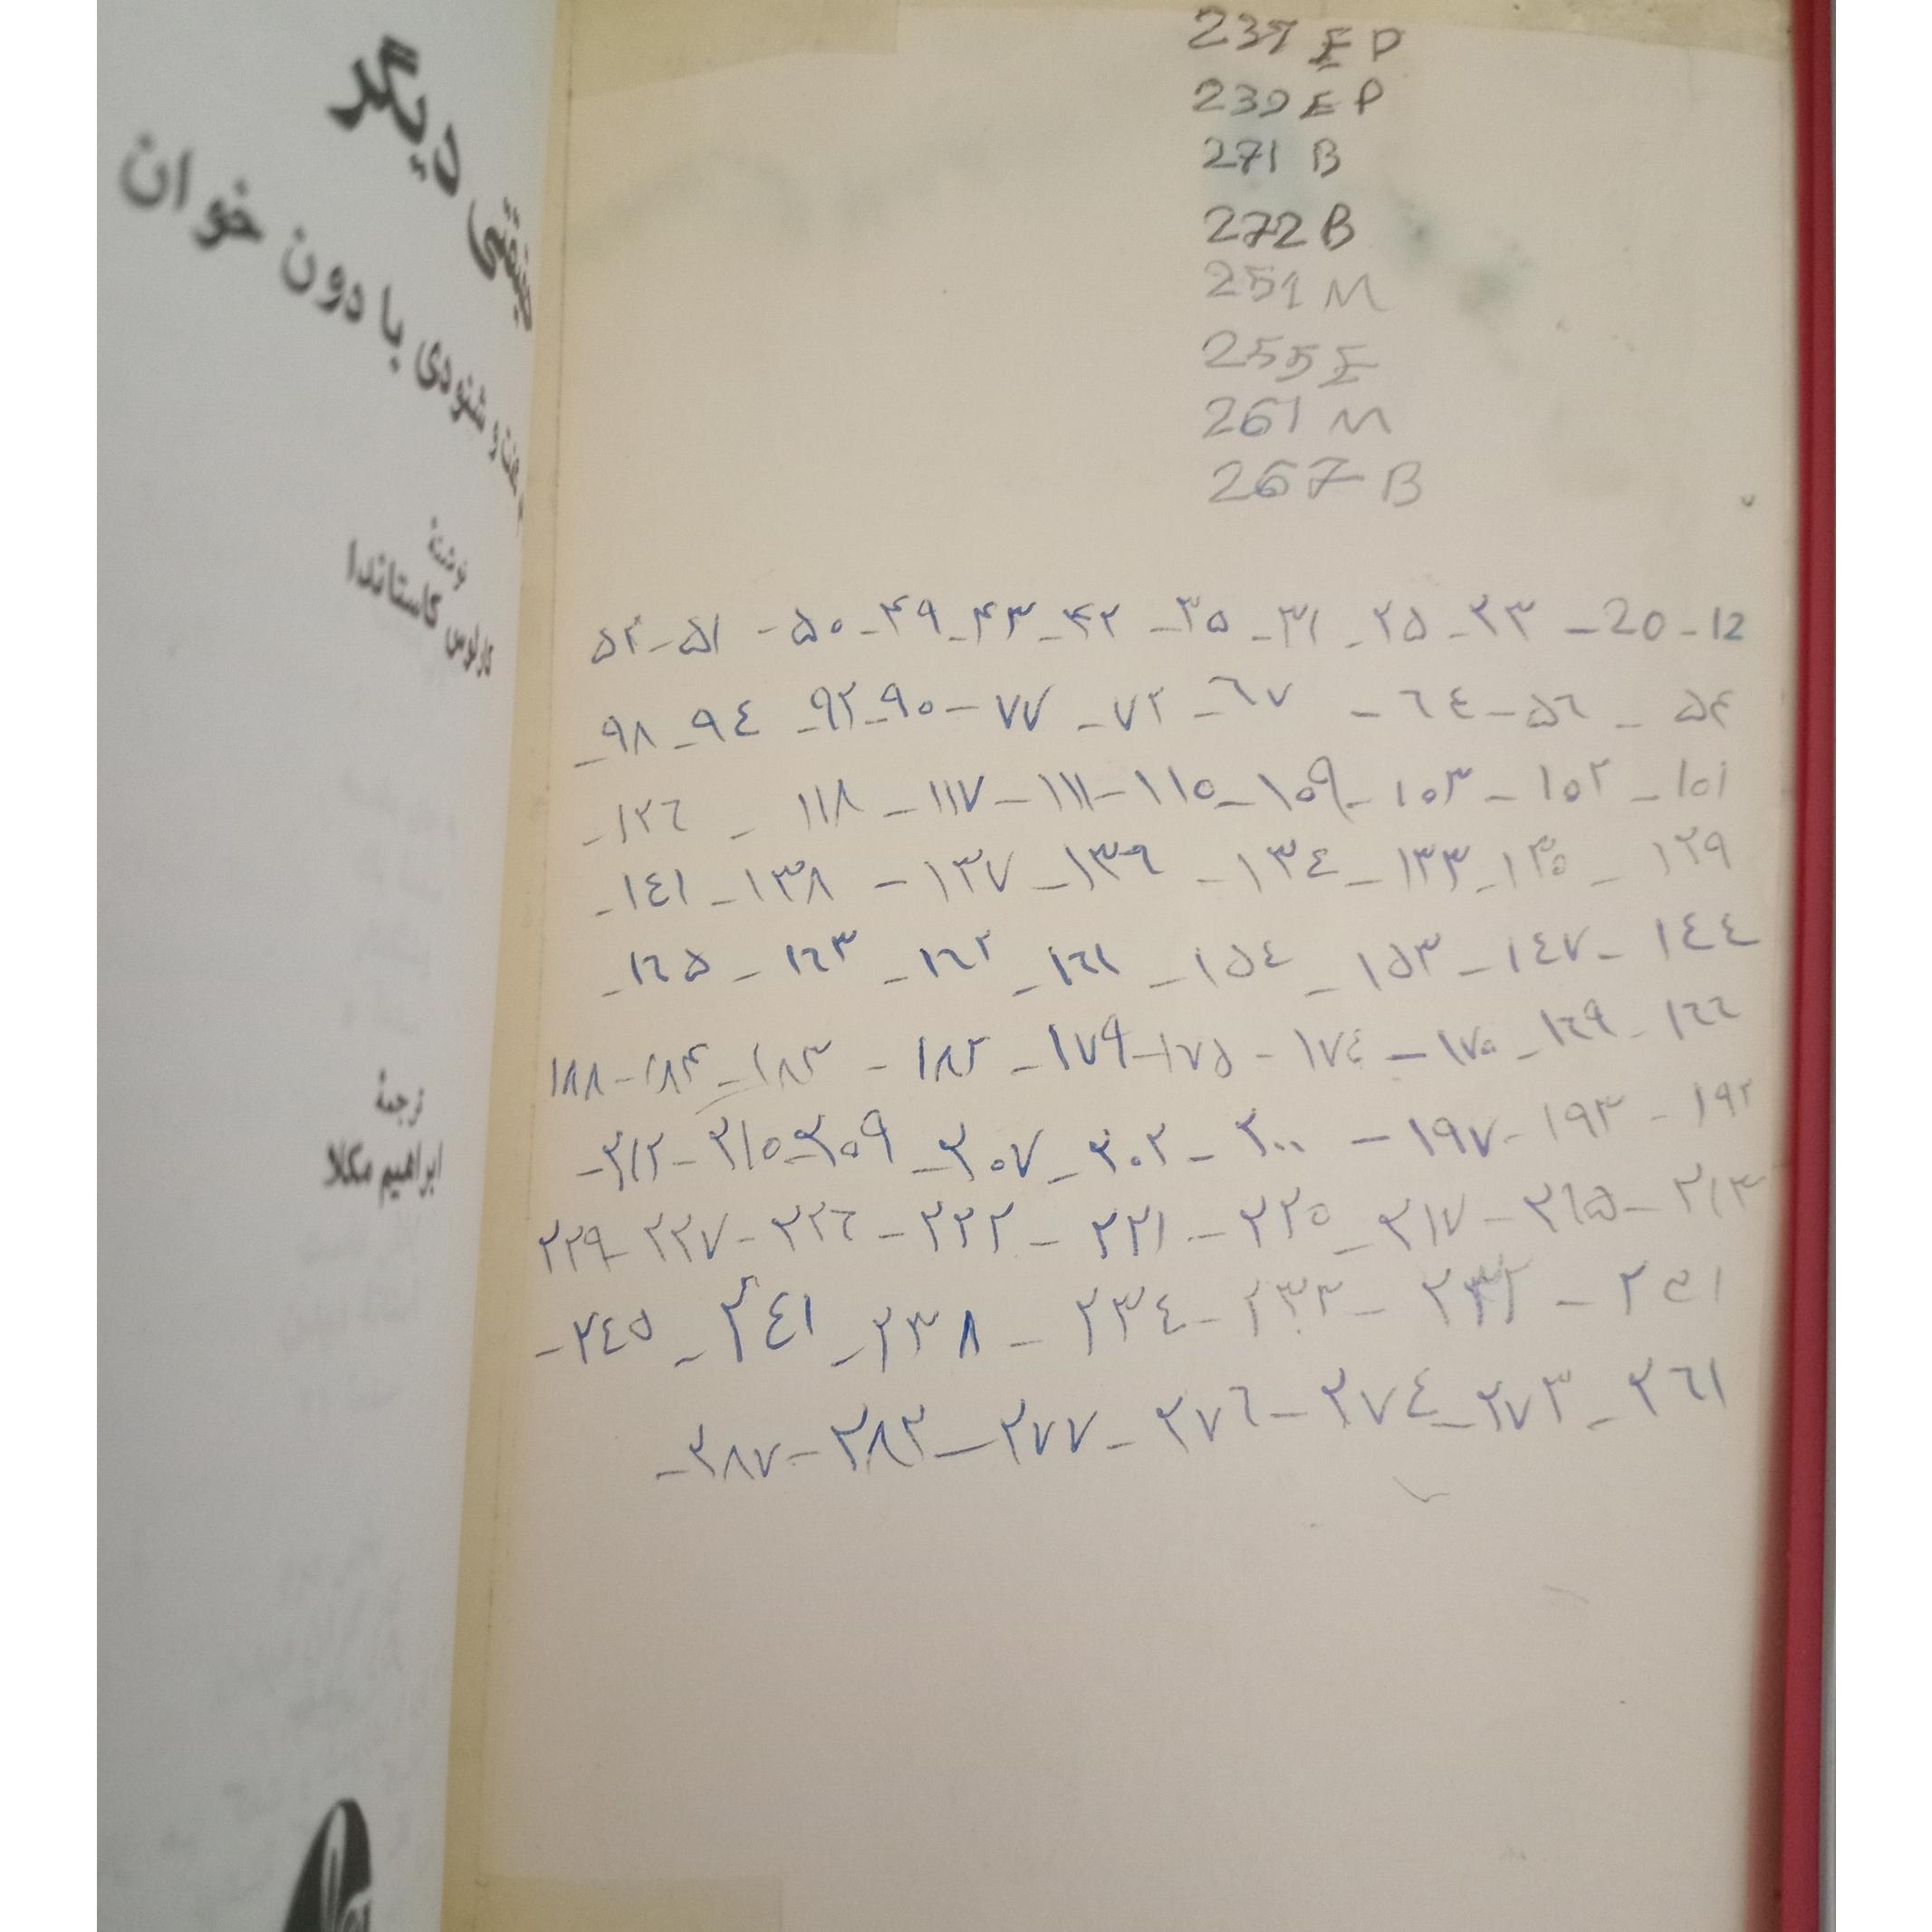 حقیقتی دیگر
گفت و شنودی با دون خوان
نوشتهٔ
کارلوس کاستاندا
ترجمهٔ
ابراهیم مکلا
237 E P
239 E P
271 B
272 B
251 M
255 E
261 M
267 B
12 - 20 - ۲۳ - ۲۵ - ۳۱ - ۳۵ - ۴۲ - ۴۳ - ۴۹ - ۵۰ - ۵۱ - ۵۲
۵۴ - ۵٦ - ٦٤ - ٦۷ - ۷۲ - ۷۷ - ۹۰ - ۹۲ - ۹٤ - ۹۸ -
۱۰۱ - ۱۰۲ - ۱۰۳ - ۱۰۹ - ۱۱۰ - ۱۱۱ - ۱۱۷ - ۱۱۸ - ۱۲٦ -
۱۲۹ - ۱۳۰ - ۱۳۳ - ۱۳٤ - ۱۳۶ - ۱۳۷ - ۱۳۸ - ۱٤۱ -
۱٤٤ - ۱٤۷ - ۱۵۳ - ۱۵٤ - ۱٦۱ - ۱٦۲ - ۱٦۳ - ۱٦۵ -
۱٦٦ - ۱٦۹ - ۱۷۰ - ۱۷٤ - ۱۷۵ - ۱۷۹ - ۱۸۲ - ۱۸۳ - ۱۸۴ - ۱۸۸
۱۹۲ - ۱۹۳ - ۱۹۷ - ۲۰۰ - ۲۰۲ - ۲۰۷ - ۲۰۹ - ۲۱۰ - ۲۱۲ -
۲۱۳ - ۲۱۵ - ۲۱۷ - ۲۲۰ - ۲۲۱ - ۲۲۲ - ۲۲٦ - ۲۲۷ - ۲۲۹
۲۳۲ - ۲۳۳ - ۲۳٤ - ۲۳۸ - ۲٤۱ - ۲٤۵ -
۲٦۱ - ۲۷۳ - ۲۷٤ - ۲۷٦ - ۲۷۷ - ۲۸۳ - ۲۸۷ -